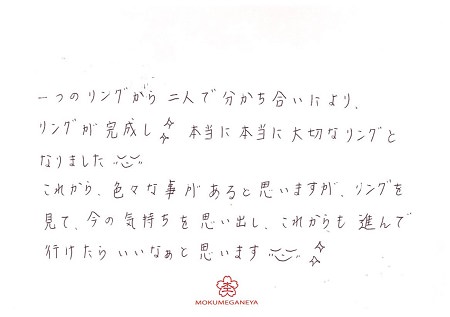 一つのリングから二人で分かち合いにより、
リングが完成し 本当に本当に大切なリングと
なりました
これから、色々な事があると思いますが、リングを
見て、今の気持ちを思い出し、これからも進んで
行けたらいいなぁと思います
MOKUMEGANEYA